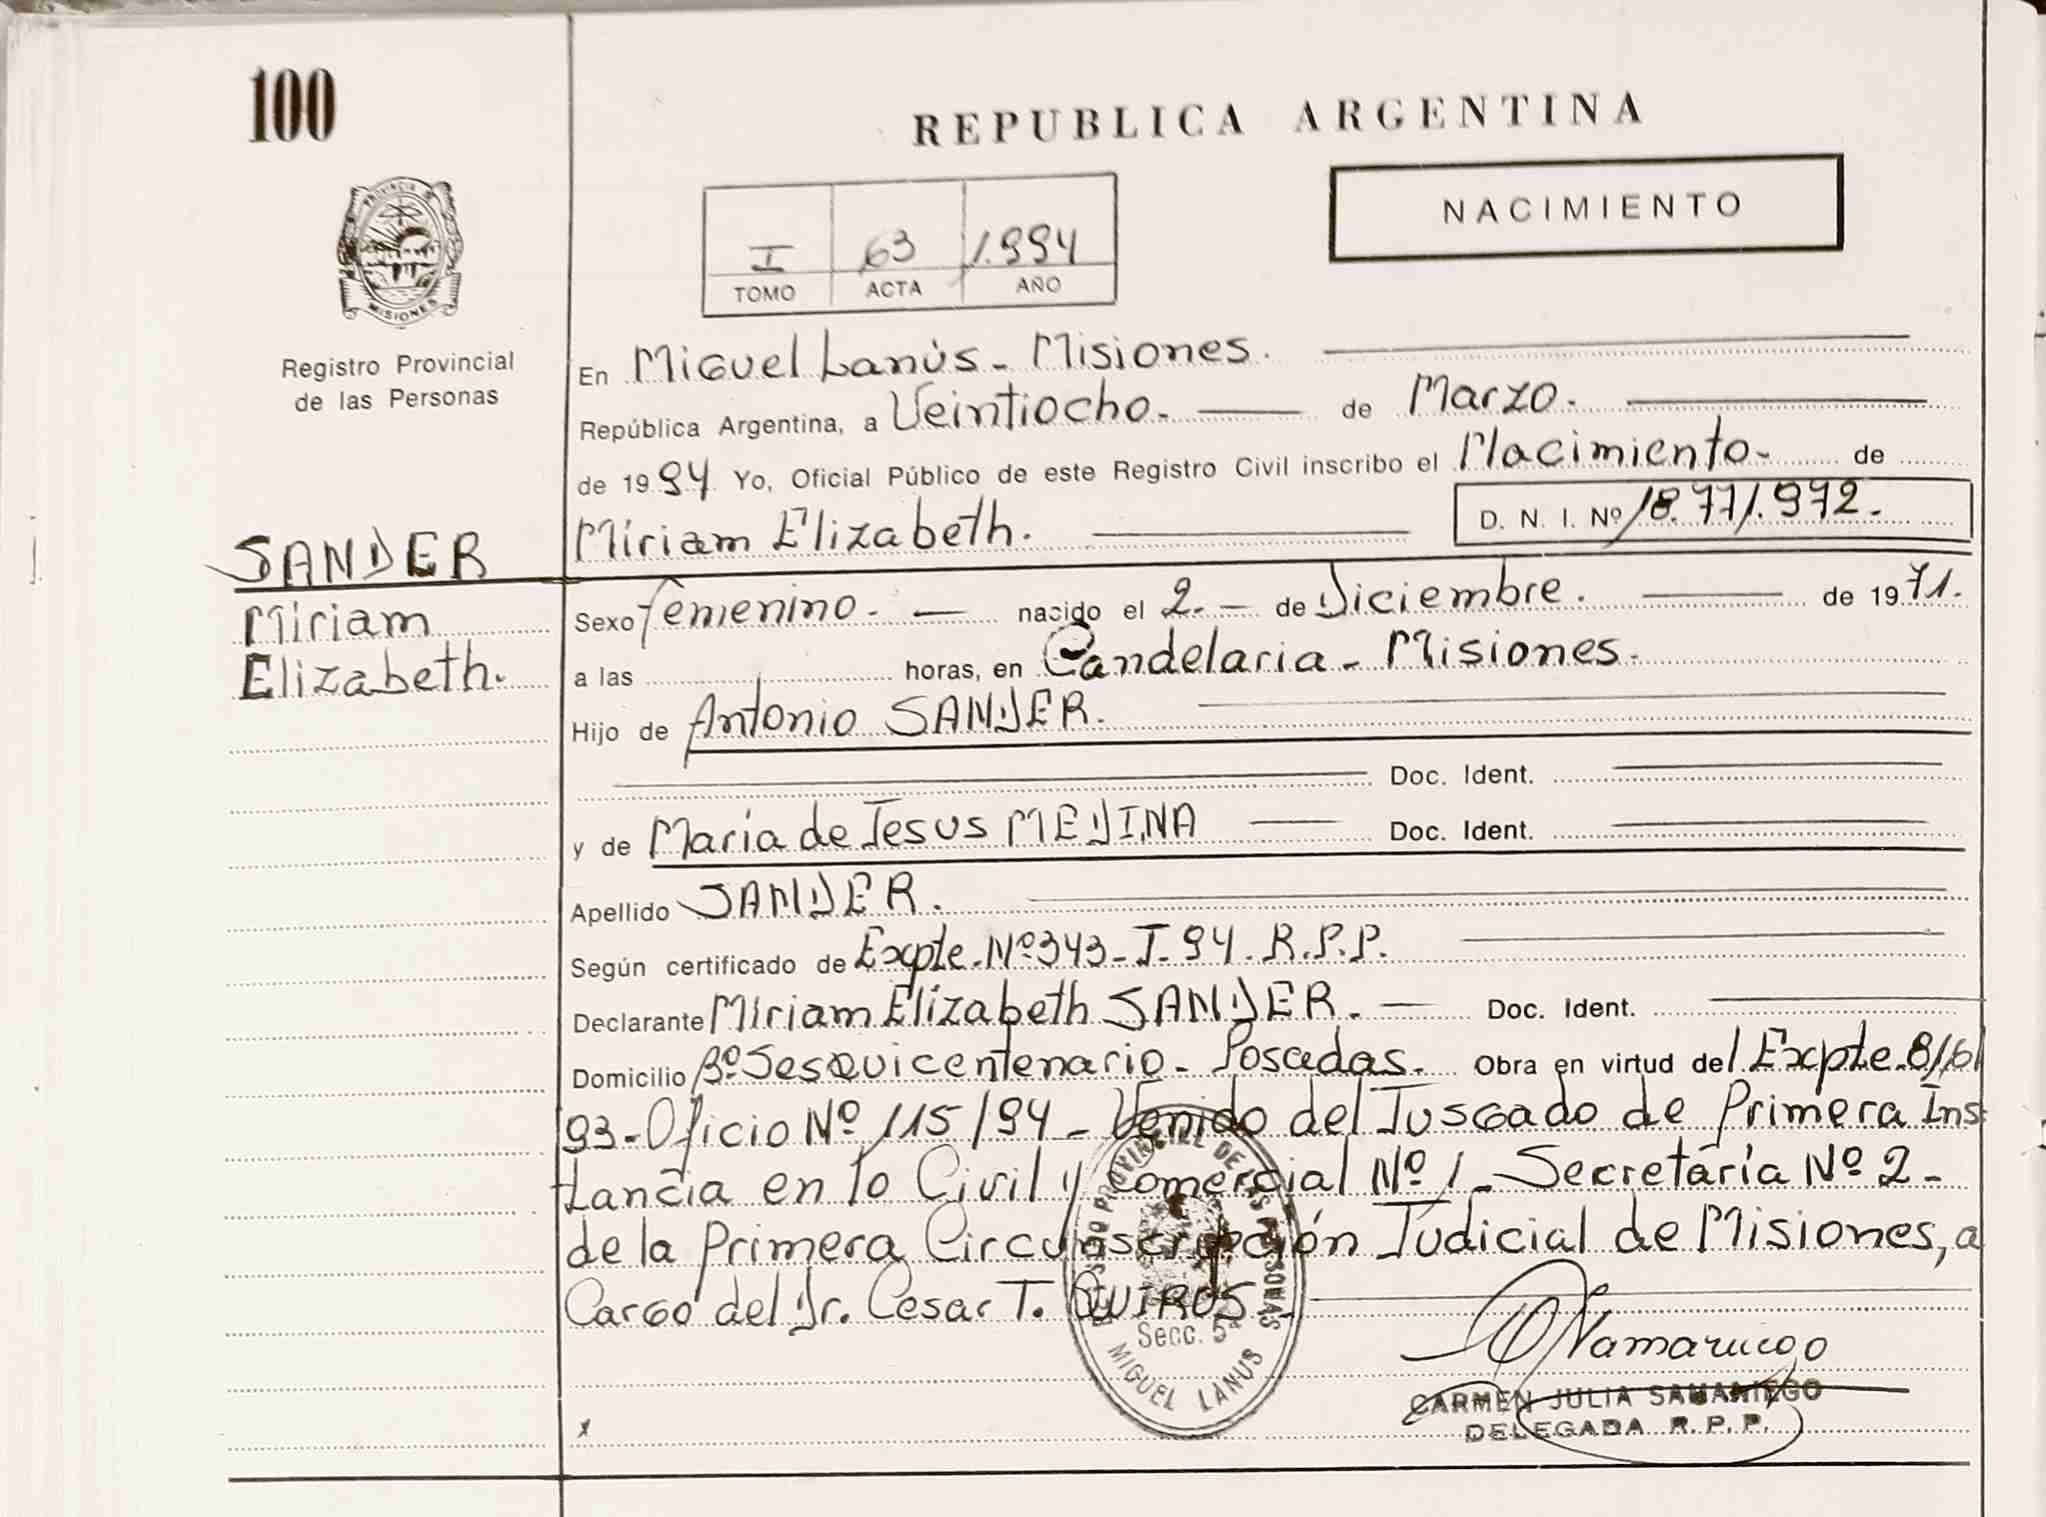 100
REPUBLICA ARGENTINA
NACIMIENTO
PROVINCIA DE
MISIONES
I 63 1.994
TOMO ACTA AÑO
Registro Provincial
de las Personas
En Miguel Lanús - Misiones.
República Argentina, a Veintiocho. de Marzo.
de 1994 Yo, Oficial Público de este Registro Civil inscribo el Nacimiento - de
Miriam Elizabeth. D. N. I. Nº 18.771.972.
SANDER
Miriam
Elizabeth.
Sexo femenino. - nacido el 2. - de Diciembre. de 1971.
a las horas, en Candelaria - Misiones.
Hijo de Antonio SANDER.
Doc. Ident.
y de Maria de Jesus MEDINA Doc. Ident.
Apellido SANDER.
Según certificado de Expte. Nº 343-I-94. R.P.P.
Declarante Miriam Elizabeth SANDER. - Doc. Ident.
Domicilio Bº Sesquicentenario - Posadas. Obra en virtud del Expte.
93 - Oficio Nº 115/94 - Venido del Jusgado de Primera Ins
tancia en lo Civil y Comercial Nº 1 - Secretaría Nº 2 -
de la Primera Circunscripción Judicial de Misiones, a
Cargo del Dr. Cesar T. QUIROS -
REGISTRO PROVINCIAL DE LAS PERSONAS
Secc. 5ª
MIGUEL LANUS
CARMEN JULIA SAMANIEGO
DELEGADA R. P. P.